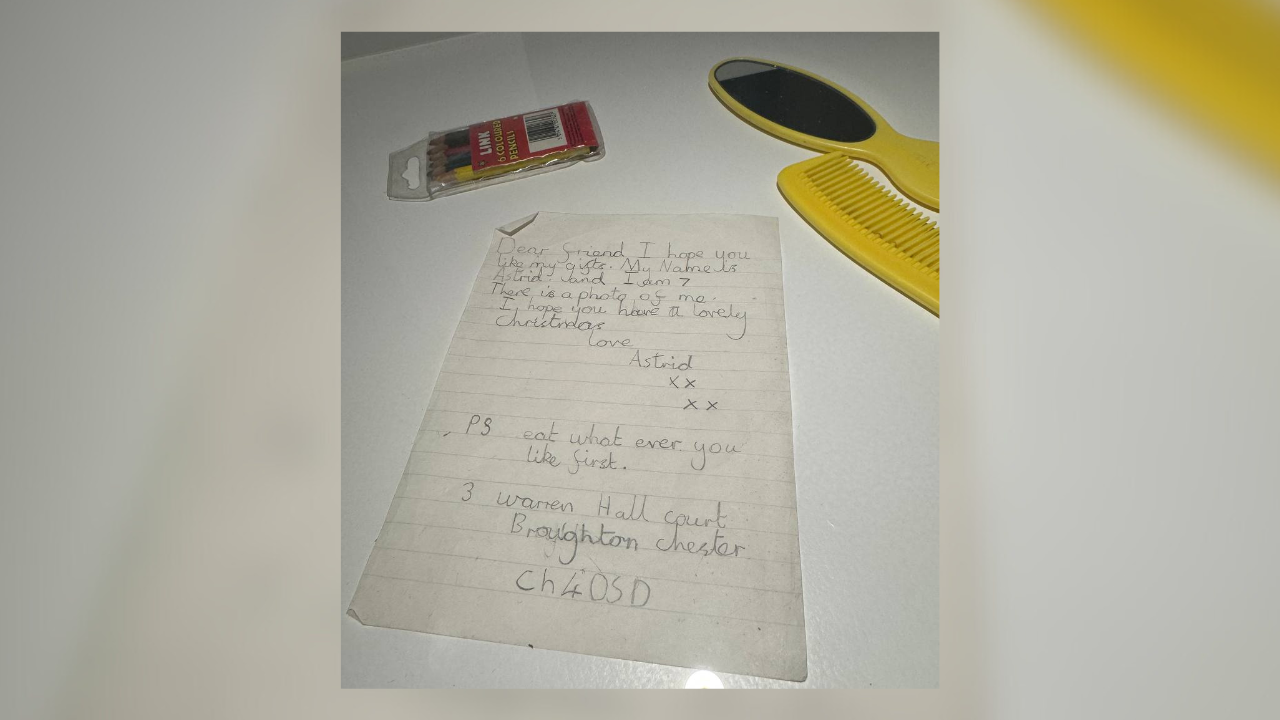 LINK
6 COLOURED
PENCILS
Dear friend I hope you
like my gifts. My Name is
Astrid and I am 7
There is a photo of me.
I hope you have a lovely
Christmas
love
Astrid
xx
xx
PS eat what ever you
like first.
3 warren Hall court
Broughton chester
Ch4 0SD